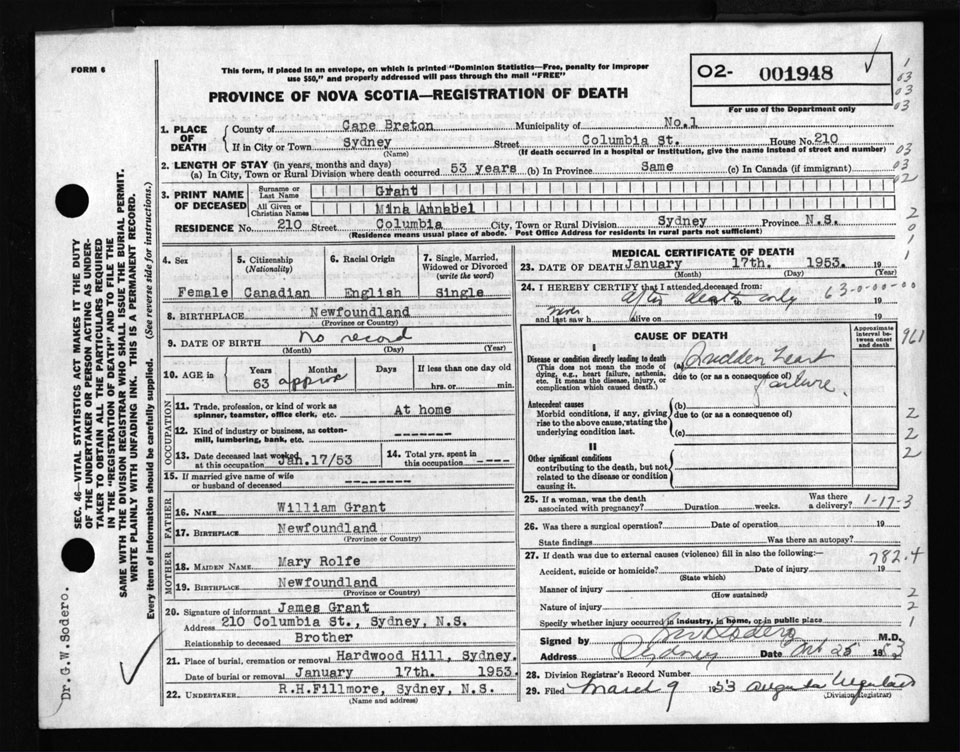 FORM 6
This form, if placed in an envelope, on which is printed "Dominion Statistics—Free, penalty for improper
use $50," and properly addressed will pass through the mail "FREE"
PROVINCE OF NOVA SCOTIA—REGISTRATION OF DEATH
02- 001948
For use of the Department only
1. PLACE OF DEATH
County of Cape Breton Municipality of No.1
If in City or Town Sydney Street Columbia St. House No. 210
(Name) (If death occurred in a hospital or institution, give the name instead of street and number)
2. LENGTH OF STAY (in years, months and days)
(a) In City, Town or Rural Division where death occurred 53 years (b) In Province Same (c) In Canada (if immigrant)
3. PRINT NAME OF DECEASED
Surname or Last Name Grant
All Given or Christian Names Mina Annabel
RESIDENCE No. 210 Street Columbia City, Town or Rural Division Sydney Province N.S.
(Residence means usual place of abode. Post Office Address for residents in rural parts not sufficient)
4. Sex
Female
5. Citizenship (Nationality)
Canadian
6. Racial Origin
English
7. Single, Married, Widowed or Divorced (write the word)
Single
8. BIRTHPLACE Newfoundland
(Province or Country)
9. DATE OF BIRTH No record
(Month) (Day) (Year)
10. AGE in
Years Months Days If less than one day old
63 approx hrs. or min.
OCCUPATION
11. Trade, profession, or kind of work as spinner, teamster, office clerk, etc. At home
12. Kind of industry or business, as cotton-mill, lumbering, bank, etc. -------
13. Date deceased last worked at this occupation Jan.17/53
14. Total yrs. spent in this occupation ----
15. If married give name of wife or husband of deceased --------
FATHER
16. NAME William Grant
17. BIRTHPLACE Newfoundland
(Province or Country)
MOTHER
18. MAIDEN NAME Mary Rolfe
19. BIRTHPLACE Newfoundland
(Province or Country)
20. Signature of informant James Grant
Address 210 Columbia St., Sydney, N.S.
Relationship to deceased Brother
21. Place of burial, cremation or removal Hardwood Hill, Sydney.
Date of burial or removal January 17th. 1953.
22. UNDERTAKER R.H.Fillmore, Sydney, N.S.
(Name and address)
MEDICAL CERTIFICATE OF DEATH
23. DATE OF DEATH January 17th. 1953. 19
(Month) (Day) (Year)
24. I HEREBY CERTIFY that I attended deceased from:
after death only 19
63-0-00-00
and last saw h alive on 19
CAUSE OF DEATH
Approximate interval between onset and death
I
Disease or condition directly leading to death
(This does not mean the mode of dying, e.g., heart failure, asthenia, etc. It means the disease, injury, or complication which caused death.)
(a) Sudden heart
due to (or as a consequence of) failure.
Antecedent causes
Morbid conditions, if any, giving rise to the above cause, stating the underlying condition last.
(b)
due to (or as a consequence of)
(c)
II
Other significant conditions
contributing to the death, but not related to the disease or condition causing it.
25. If a woman, was the death associated with pregnancy? Duration weeks. Was there a delivery? 1-17-3
26. Was there a surgical operation? Date of operation 19
State findings Was there an autopsy?
27. If death was due to external causes (violence) fill in also the following:
782.4
Accident, suicide or homicide? Date of injury 19
(State which)
Manner of injury
(How sustained)
Nature of injury
Specify whether injury occurred in industry, in home, or in public place
Signed by GW Sodero M.D.
Address Sydney Date Feb 25 1953
28. Division Registrar's Record Number
29. Filed March 9 1953
(Division Registrar)
1
03
03
03
03
03
02
2
0
1
1
961
2
2
2
2
2
1
SEC. 46—VITAL STATISTICS ACT MAKES IT THE DUTY
OF THE UNDERTAKER OR PERSON ACTING AS UNDER-
TAKER TO OBTAIN ALL THE PARTICULARS REQUIRED
IN THE "REGISTRATION OF DEATH" AND TO FILE THE
SAME WITH THE DIVISION REGISTRAR WHO SHALL ISSUE THE BURIAL PERMIT.
WRITE PLAINLY WITH UNFADING INK. THIS IS A PERMANENT RECORD.
Every item of information should be carefully supplied. (See reverse side for instructions.)
Dr.G.W.Sodero.